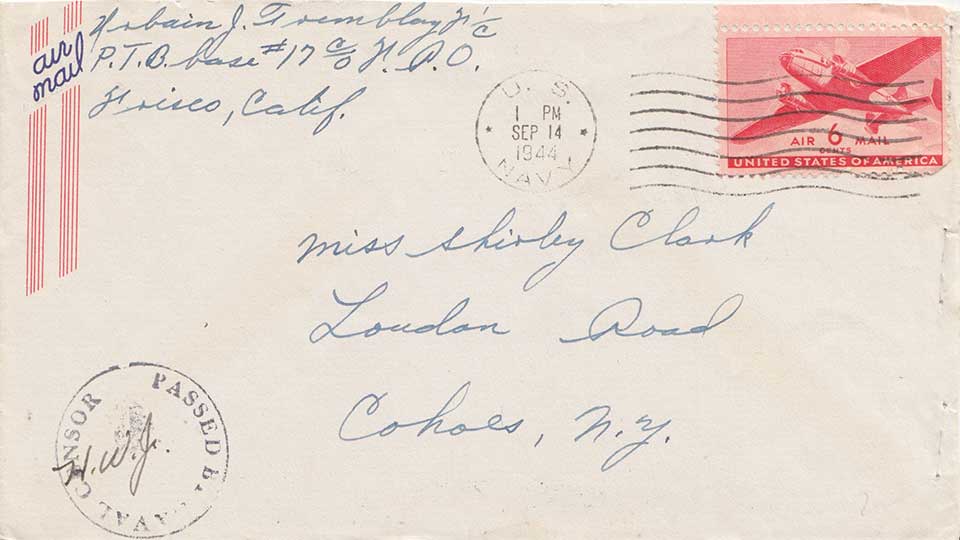 air
mail
Urbain J. Tremblay F 1/c
P.T.B. base #17 c/o F.P.O.
Frisco, Calif.
U. S.
1 PM
SEP 14
1944
NAVY
AIR 6 MAIL
CENTS
UNITED STATES OF AMERICA
Miss Shirley Clark
Loudon Road
Cohoes, N.Y.
PASSED BY NAVAL CENSOR